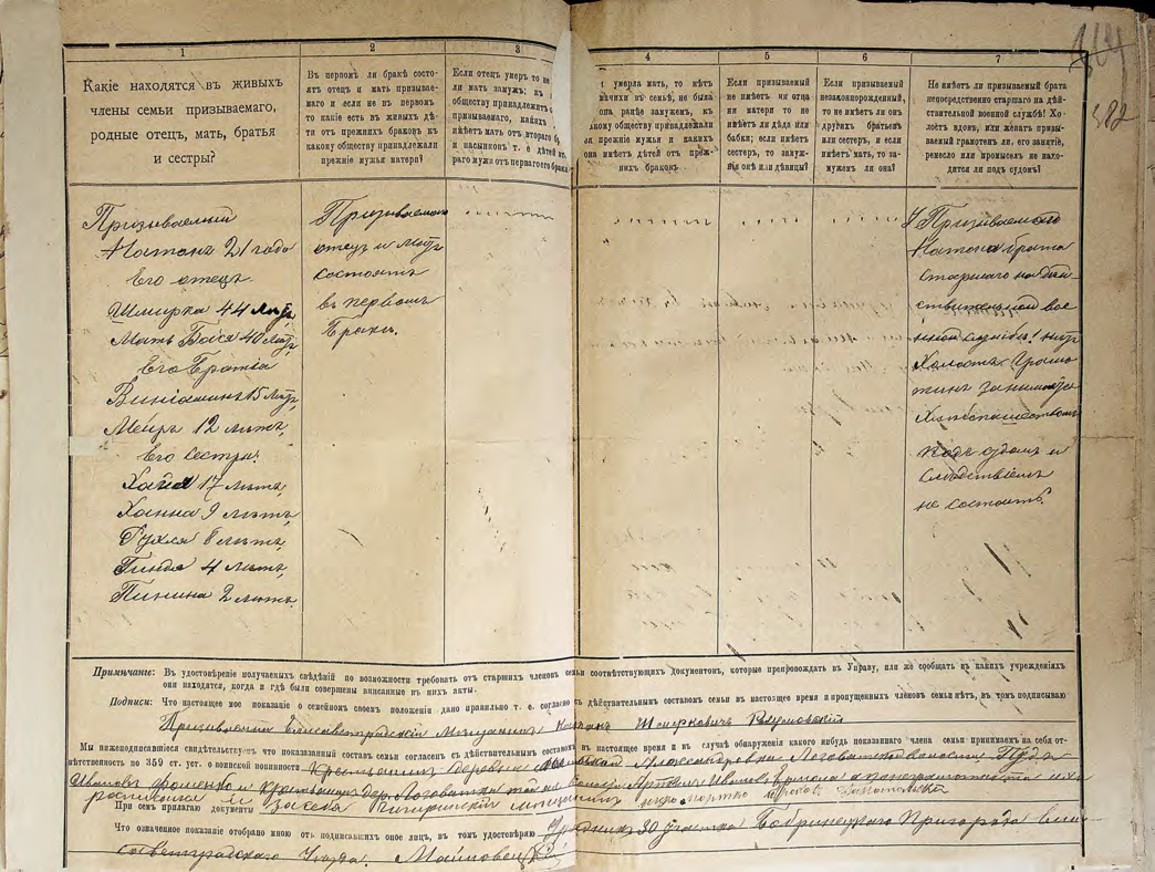 404
382
1
2
3
4
5
6
7
Какіе находятся въ живыхъ
члены семьи призываемаго,
родные отецъ, мать, братья
и сестры?
Въ первомъ ли бракѣ состо-
ятъ отецъ и мать призывае-
маго и если не въ первомъ
то какіе есть въ живыхъ дѣ-
ти отъ прежнихъ браковъ къ
какому обществу принадлежали
прежніе мужья матери?
Если отецъ умеръ то не
ли мать замужъ; къ
обществу принадлежитъ
призываемаго, какихъ
имѣетъ мать отъ втораго
и пасынковъ т. е. дѣтей
раго мужа отъ перваго его брака
умерла мать, то нѣтъ
мачихи въ семьѣ, не была
она ранѣе замужемъ, къ
какому обществу принадлежали
прежніе мужья и какихъ
она имѣетъ дѣтей отъ преж-
нихъ браковъ
Если призываемый
не имѣетъ ни отца
ни матери то не
имѣетъ ли дѣда или
бабки; если имѣетъ
сестеръ, то замуж-
нія онѣ или дѣвицы?
Если призываемый
незаконорожденный,
то не имѣетъ ли онъ
другихъ братьевъ
или сестеръ, и если
имѣетъ мать, то за-
мужемъ ли она?
Не имѣетъ ли призываемый брата
непосредственно старшаго на дѣй-
ствительной военной службѣ! Хо-
лостъ вдовъ, или женатъ призы-
ваемый грамотенъ ли, его занятіе,
ремесло или промыселъ не нахо-
дится ли подъ судомъ?
Призываемый
Натанъ 21 года
Его отецъ
Шмирка 44 лѣтъ,
Мать Бася 40 лѣтъ,
Его Братія
Виніаминъ 15 лѣтъ,
Мейръ 12 лѣтъ,
Его Сестра:
Хая 17 лѣтъ,
Ханна 9 лѣтъ,
Рухля 8 лѣтъ,
Гинда 4 лѣтъ,
Пинина 2 лѣтъ.
Призываемаго
отецъ и мать
состоятъ
въ первомъ
Браки.
У Призываемаго
Натана брата
Старшаго на дѣй-
ствительной вое
нной службѣ! нѣтъ
Холостъ. Грамо
тенъ занимается
Хлебопашествомъ
подъ судомъ и
Следствіемъ
не состоитъ.
Примѣчаніе: Въ удостовѣреніе получаемыхъ свѣдѣній по возможности требовать отъ старшихъ членовъ семьи соотвѣтствующихъ документовъ, которые препровождать въ Управу, или же сообщать въ какихъ учрежденіяхъ
они находятся, когда и гдѣ были совершены вписанные въ нихъ акты.
Подписи: Что настоящее мое показаніе о семейномъ своемъ положеніи дано правильно т. е. согласно съ дѣйствительнымъ составомъ семьи въ настоящее время и пропущенныхъ членовъ семьи нѣтъ, въ томъ подписываю
Елисаветградскій Мѣщанинъ Натанъ Шмирковичъ
Мы нижеподписавшіеся свидѣтельствуемъ что показанный составъ семьи согласенъ съ дѣйствительнымъ составомъ въ настоящее время и въ случаѣ обнаруженія какого нибудь показаннаго члена семьи принимаемъ на себя от-
вѣтственность по 359 ст. уст. о воинской повинности Крестьянинъ деревни Александровки
Ивановъ Фоменко и Крестьянинъ дер. Логоватки
При семъ прилагаю документы
Что означенное показаніе отобрано мною отъ подписавшихъ оное лицъ, въ томъ удостовѣряю Урядникъ 30 участка Бобринецкаго Пригорода Ели-
саветградскаго Уѣзда.